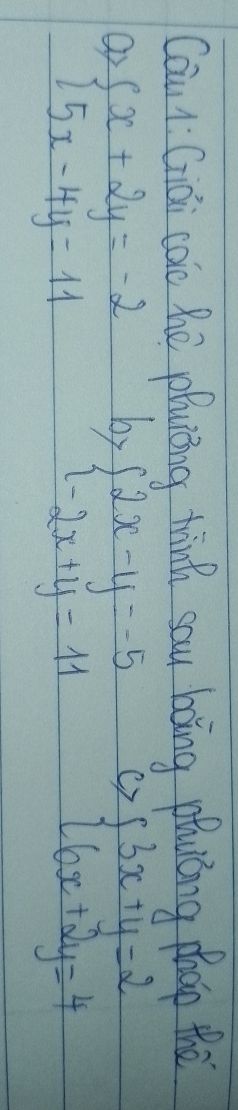 Câu 1: Giải các hệ phương trình sau bằng phương pháp thế.
a) { x + 2y = -2 b) { 2x - y = -5 c) { 3x + y = 2
5x - 4y = 11 -2x + y = 11 6x + 2y = 4